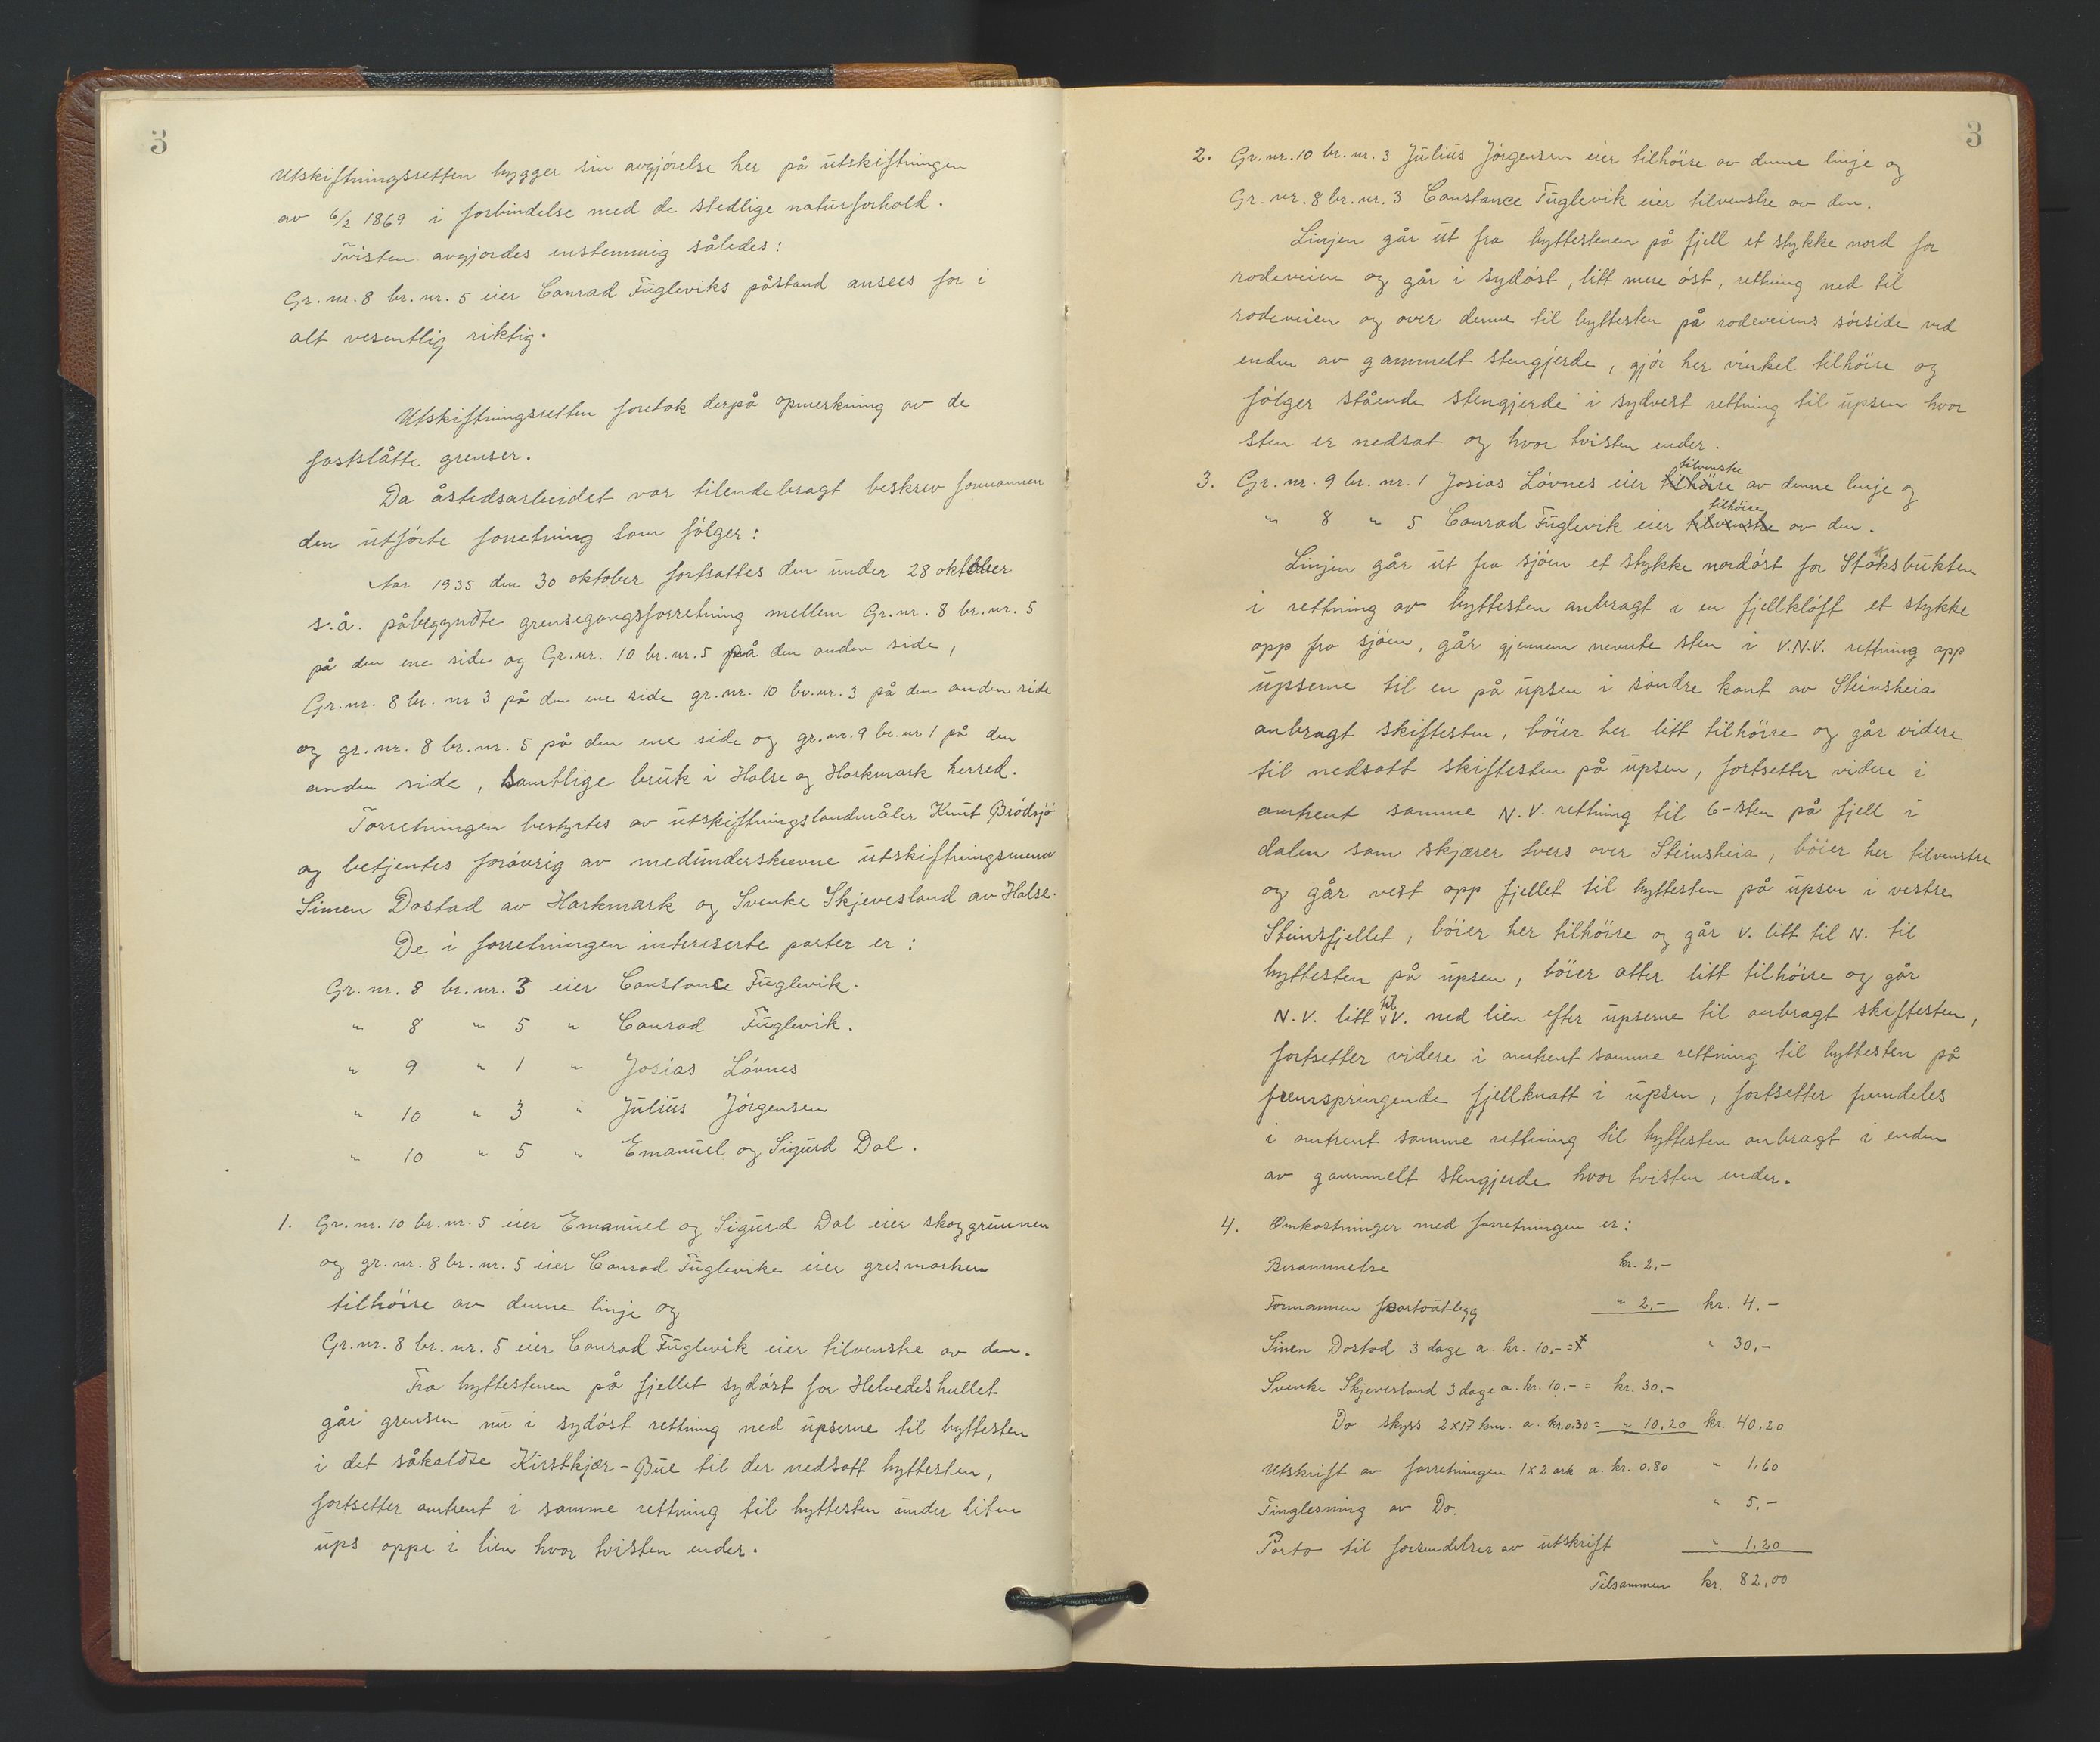 3
Utskiftningsretten bygger sin avgjörelse her på utskiftningen
av 6/2 1869 i forbindelse med de stedlige naturforhold.
Tvisten avgjordes enstemmig således:
Gr. nr. 8 br. nr. 5 eier Conrad Fugleviks påstand ansees for i
alt vesentlig riktig.
Utskiftningsretten foretok derpå opmerkning av de
fastslåtte grenser.
Da åstedsarbeidet var tilendebragt beskrev formannen
den utförte forretning som fölger:
Aar 1935 den 30 oktober fortsattes den under 28 oktober
s.å. påbegyndte grensegangsforretning mellem Gr. nr. 8 br. nr. 5
på den ene side og Gr. nr. 10 br. nr. 5 på den anden side,
Gr. nr. 8 br. nr 3 på den ene side gr. nr. 10 br. nr. 3 på den anden side
og gr. nr. 8 br. nr. 5 på den ene side og gr. nr. 9 br. nr 1 på den
anden side, samtlige bruk i Halse og Harkmark herred.
Forretningen bestyrtes av utskiftningslandmåler Knut Brödsjö
og betjentes forövrig av medunderskrevne utskiftningsmenn
Simen Dostad av Harkmark og Svenke Skjevesland av Halse.
De i forretningen interiserte parter er:
Gr. nr. 8 br. nr. 3 eier Constance Fuglevik.
" 8 " 5 " Conrad Fuglevik.
" 9 " 1 " Josias Lövnes
" 10 " 3 " Julius Jörgensen
" 10 " 5 " Emanuel og Sigurd Dal.
1. Gr. nr. 10 br. nr. 5 eier Emanuel og Sigurd Dal eier skoggrunnen
og gr. nr. 8 br. nr. 5 eier Conrad Fuglevike eier gresmarken
tilhöire av denne linje og
Gr. nr. 8 br. nr. 5 eier Conrad Fuglevik eier tilvenstre av den.
Fra byttestenen på fjellet sydöst for Helvedeshullet
går grensen nu i sydöst rettning ned upserne til byttesten
i det såkaldte Kirstkjær-Bue til der nedsatt byttesten,
fortsetter omtrent i samme rettning til byttesten under liten
ups oppe i lien hvor tvisten ender.
3
2. Gr. nr. 10 br. nr. 3 Julius Jörgensen eier tilhöire av denne linje og
Gr. nr. 8 br. nr. 3 Constance Fuglevik eier tilvenstre av den.
Linjen går ut fra byttestenen på fjell et stykke nord for
rodeveien og går i sydöst, litt mere öst, rettning ned til
rodeveien og over denne til byttesten på rodeveiens sörside ved
enden av gammelt stengjerde, gjör her vinkel tilhöire og
fölger stående stengjerde i sydvest rettning til upsen hvor
sten er nedsat og hvor tvisten ender.
tilvenstre
3. Gr. nr. 9 br. nr. 1 Josias Lövnes eier tilhöire av denne linje og
tilhöire
" 8 " 5 Conrad Fuglevik eier tilvenstre av den.
Linjen går ut fra sjöen et stykke nordöst for Stöksbukten
i rettning av byttesten anbragt i en fjellklöft et stykke
opp fra sjöen, går gjennem nevnte sten i V.N.V. rettning opp
upserne til en på upsen i söndre kant av Steinsheia
anbragt skiftesten, böier her litt tilhöire og går videre
til nedsatt skiftesten på upsen, fortsetter videre i
omtrent samme N.V. rettning til 6-sten på fjell i
dalen som skjærer tvers over Steinsheia, böier her tilvenstre
og går vest opp fjellet til byttesten på upsen i vestre
Steinsfjellet, böier her tilhöire og går V. litt til N. til
byttesten på upsen, böier atter litt tilhöire og går
N.V. litt til V. ned lien efter upserne til anbragt skiftesten,
fortsetter videre i omtrent samme rettning til byttesten på
fremspringende fjellknatt i upsen, fortsetter fremdeles
i omtrent samme rettning til byttesten anbragt i enden
av gammelt stengjerde hvor tvisten ender.
4. Omkostninger med forretningen er:
Berammelse kr. 2.-
Formannen portoutlegg " 2,- kr. 4.-
Simen Dostad 3 dage a. kr. 10.- = " 30,-
Svenke Skjevesland 3 dage a. kr. 10.- = kr. 30.-
Do skyss 2x17 km. a. kr. 0.30 = " 10,20 kr. 40,20
Utskrift av forretningen 1x2 ark a. kr. 0.80 " 1.60
Tinglesning av Do. " 5.-
Porto til forsendelser av utskrift " 1,20
Tilsammen kr. 82,00